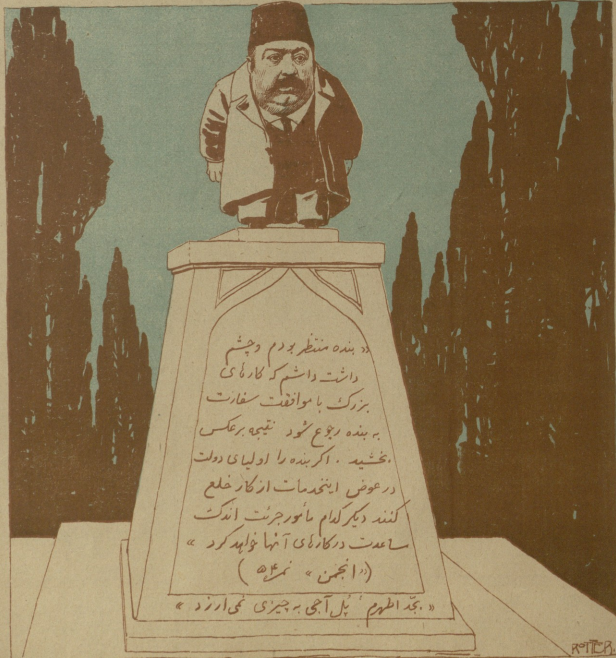 « بنده منتظر بودم و چشم
داشت داشتم که کارهای
بزرگ با موافقت سفارت
به بنده رجوع شود نتیجه برعکس
بخشید . اگر بنده را اولیای دولت
در عوض اینخدمات از کار خلع
کنند دیگر کدام مأمور جرئت اندک
ساعدت در کارهای آنها خواهد کرد »
(« انجمن » نمر ۵۴)
« بجد اطهرم ؛ پُل آجی به چیزی نمی ارزد »
ROTTER